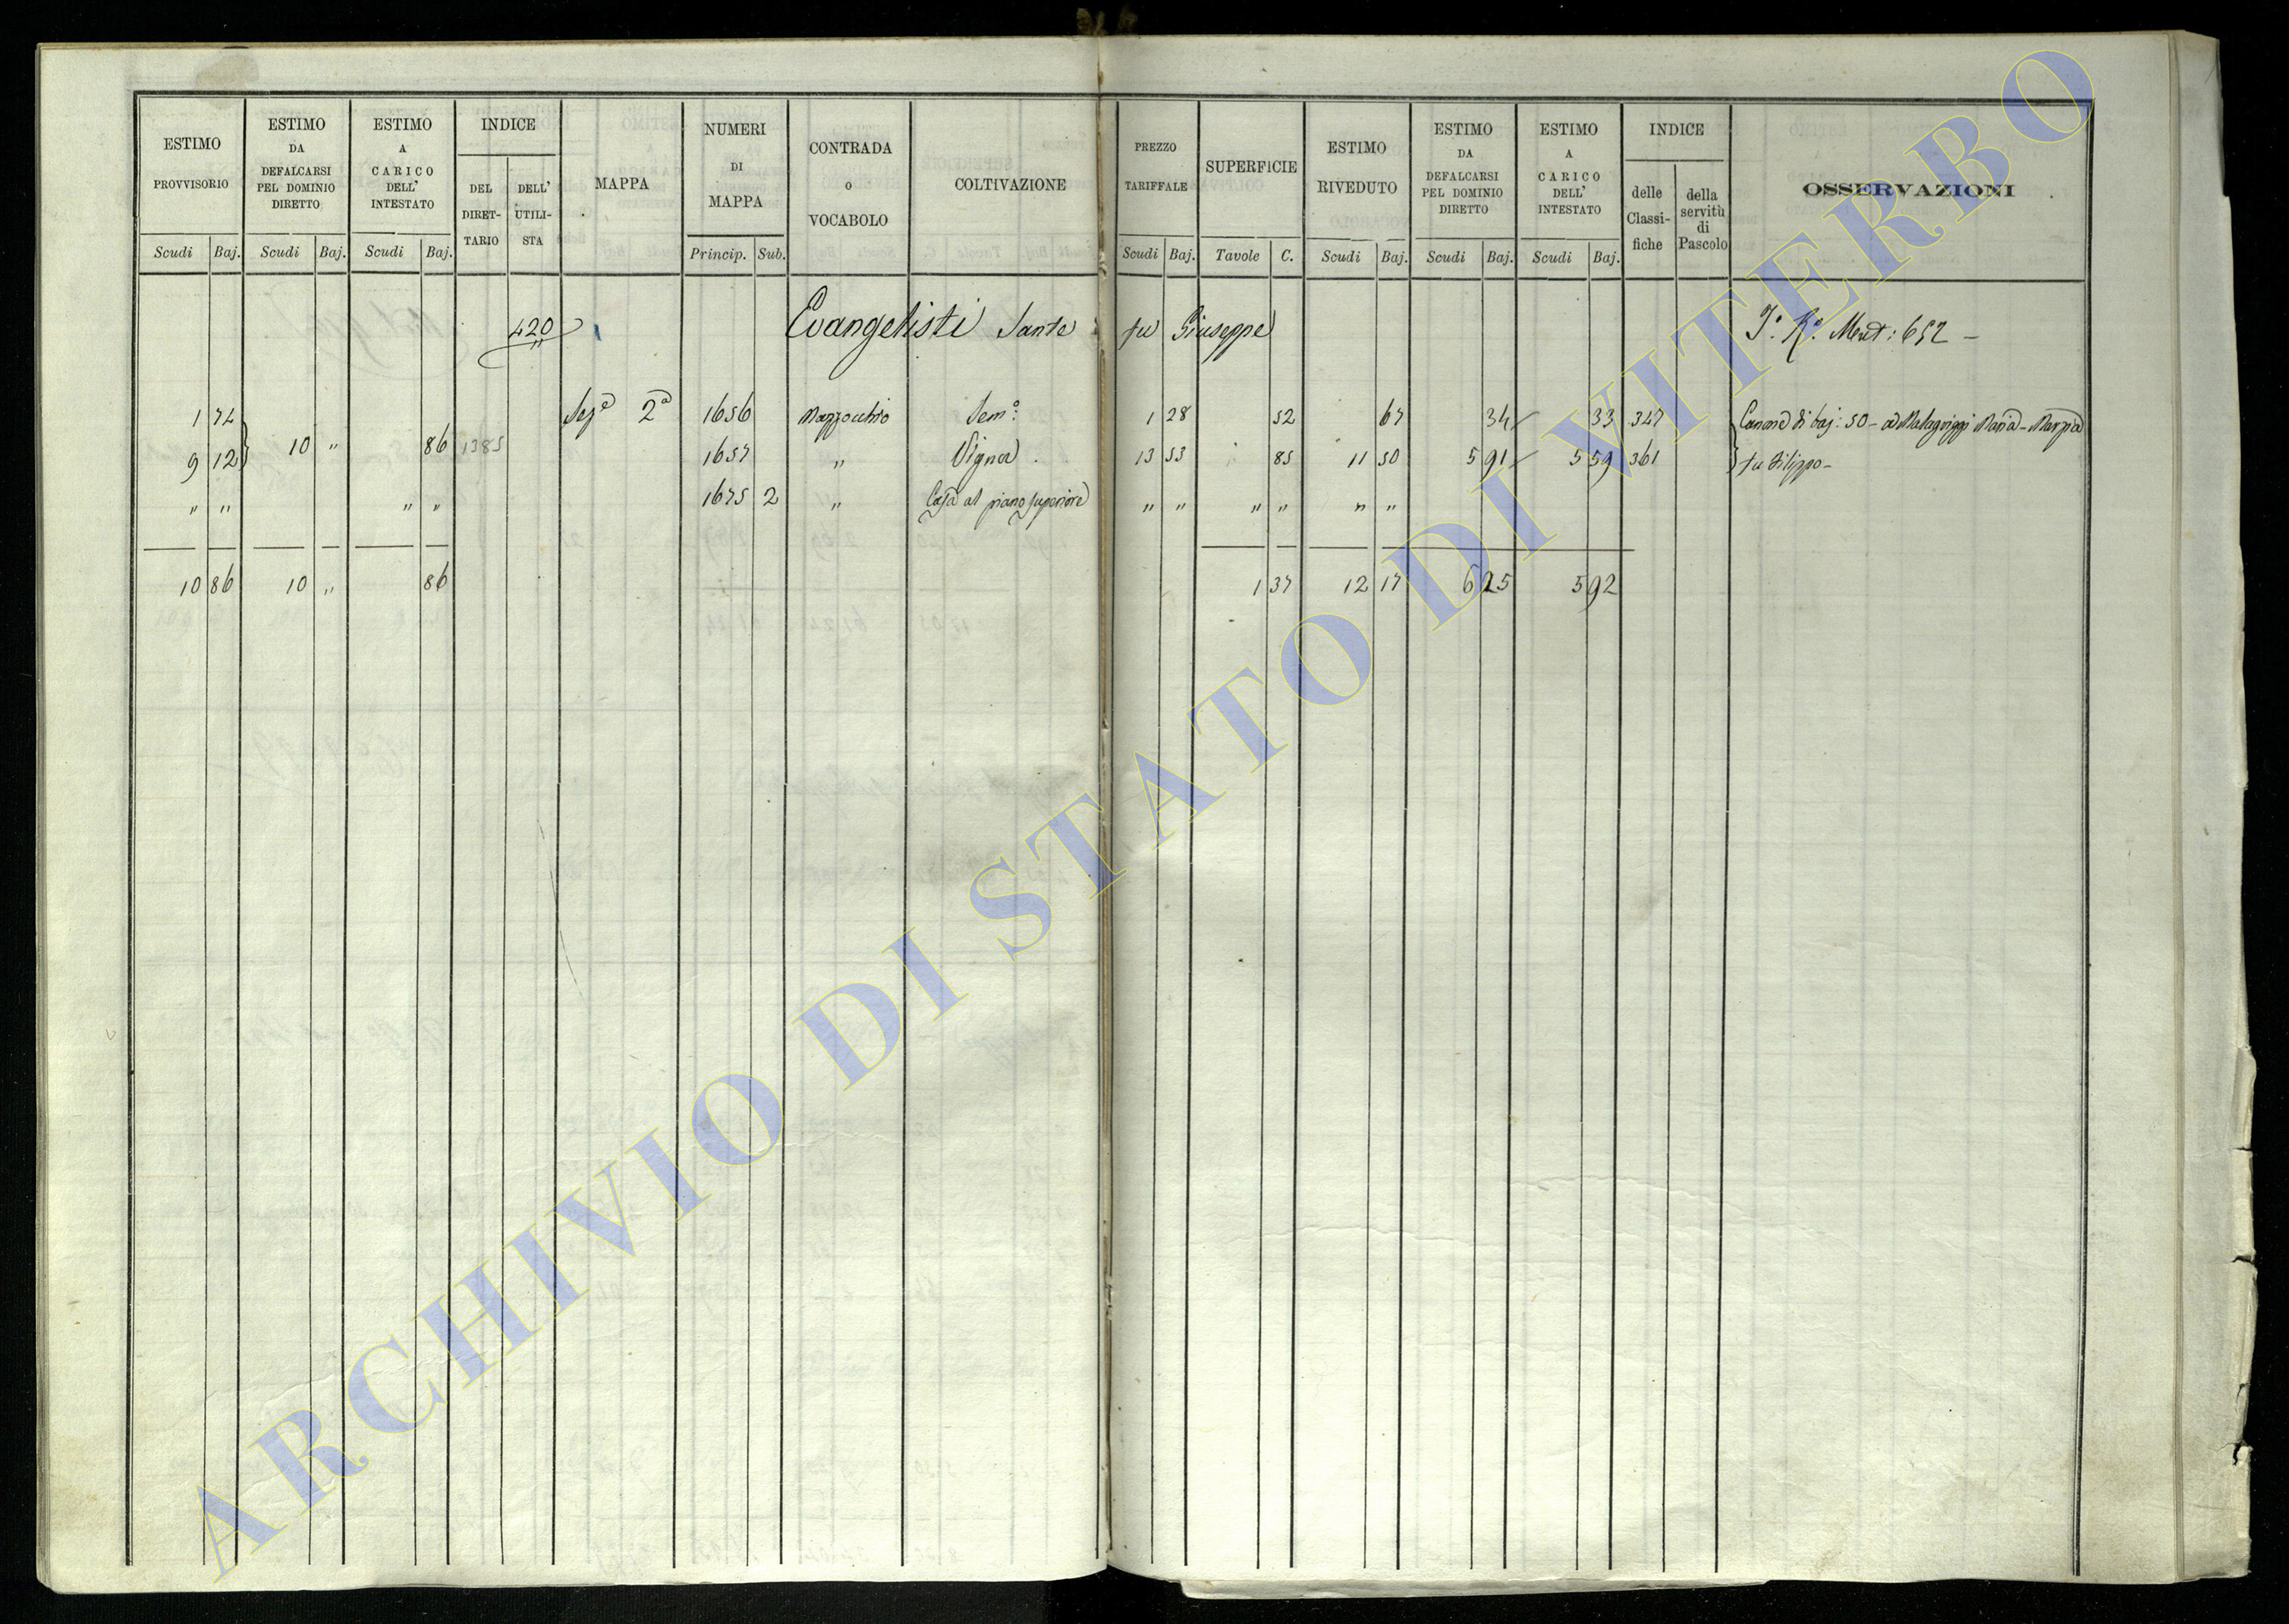 ESTIMO PROVVISORIO
Scudi Baj.
ESTIMO DA DEFALCARSI PEL DOMINIO DIRETTO
Scudi Baj.
ESTIMO A CARICO DELL' INTESTATO
Scudi Baj.
INDICE
DEL DIRET-TARIO
DELL' UTILI-STA
MAPPA
NUMERI DI MAPPA
Princip. Sub.
CONTRADA O VOCABOLO
COLTIVAZIONE
PREZZO TARIFFALE
Scudi Baj.
SUPERFICIE
Tavole C.
ESTIMO RIVEDUTO
Scudi Baj.
ESTIMO DA DEFALCARSI PEL DOMINIO DIRETTO
Scudi Baj.
ESTIMO A CARICO DELL' INTESTATO
Scudi Baj.
INDICE
delle Classi-fiche
della servitù di Pascolo
OSSERVAZIONI
420 Evangelisti Sante fu Giuseppe 652 –
1 74 Sezᵉ 2ª 1656 Mazzocchio Semᵒ: 1 28 52 67 34 33 347 Canone di baj: 50 – a Malagriggi Maria – Marzia
9 12 10 " 86 1385 1657 " Vigna 13 53 85 11 50 5 91 5 59 361 fu Filippo –
" " " " 1675 2 " Casa al piano superiore " " " " " "
10 86 10 " 86 1 37 12 17 6 25 5 92
ARCHIVIO DI STATO DI VITERBO